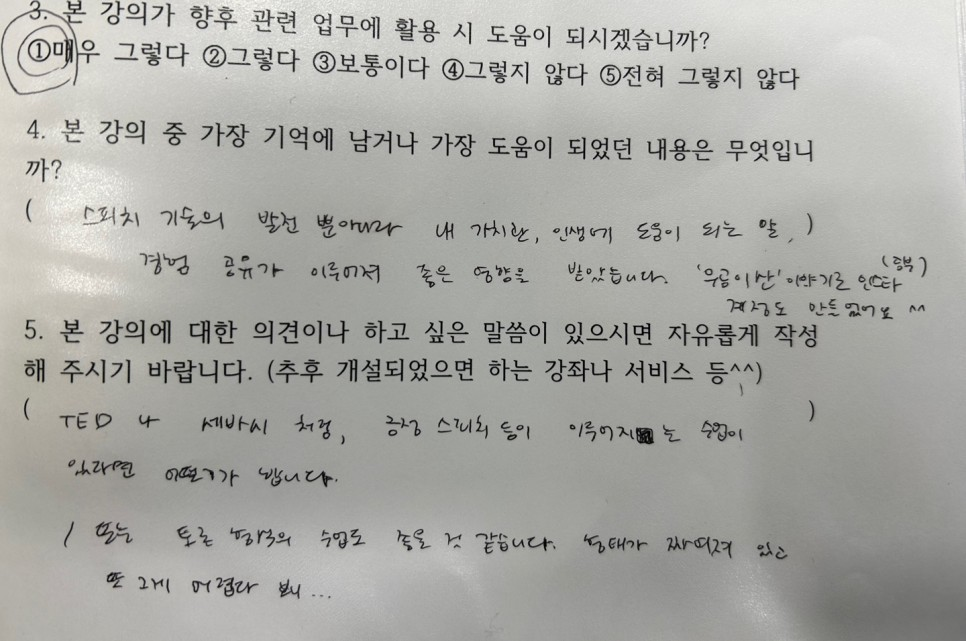 3. 본 강의가 향후 관련 업무에 활용 시 도움이 되시겠습니까?
①매우 그렇다 ②그렇다 ③보통이다 ④그렇지 않다 ⑤전혀 그렇지 않다
4. 본 강의 중 가장 기억에 남거나 가장 도움이 되었던 내용은 무엇입니
까?
( 스피치 기술의 발전 뿐아니라 내 가치관, 인생에 도움이 되는 말, )
경험 공유가 이루어져 좋은 영향을 받았습니다. '우공이산' 이야기로 인스타
계정도 만들었어요 ^^
5. 본 강의에 대한 의견이나 하고 싶은 말씀이 있으시면 자유롭게 작성
해 주시기 바랍니다. (추후 개설되었으면 하는 강좌나 서비스 등^^)
( TED 나 세바시 처럼, 긍정 스피치 등이 이루어지는 수업이 )
있다면 어떨까 봅니다.
/ 또는 토론 형식의 수업도 좋을 것 같습니다. 형태가 짜여져 있고
또 그게 어렵다 보니...